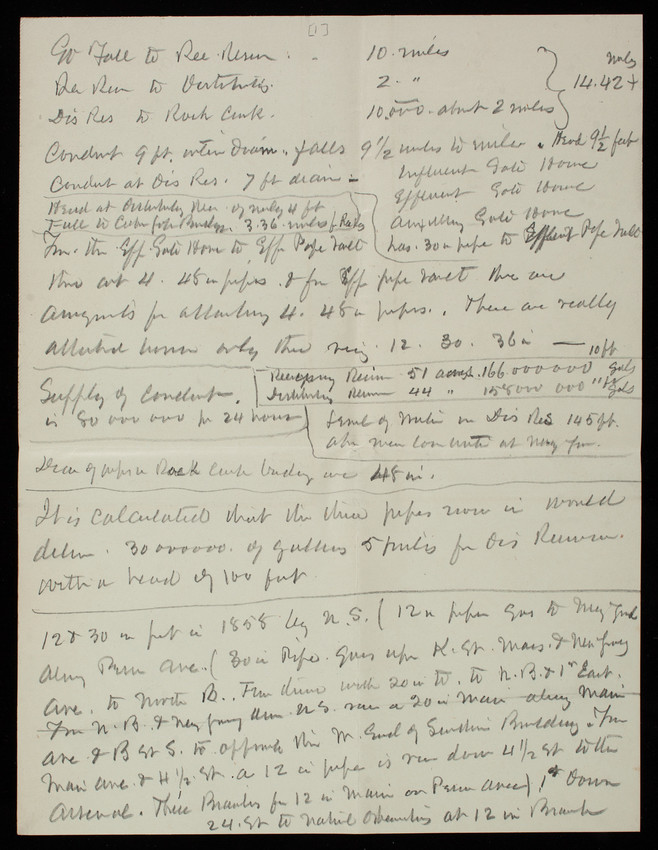 [1]
Gr Fall to Rec. Reserv. - 10 miles
Rec Resr to Distributg. 2 " miles 14.42 +
Dis Res to Rock Creek. 10,000. about 2 miles
Conduit 9 ft. inter diam. falls 9 1/2 inches to mile. Head 9 1/2 feet
Conduit at Dis Res. 7 ft diam -
Influent Gate House
Effluent Gate House
Auxillary Gate House
has. 30 in pipe to Effluent Pipe Vault
Head at Distributg Resr of only 4 ft
Fall to 3.36 miles
Frm. the Eff. Gate House to Eff Pipe Vault
there are 4. 48 in pipes. & from Eff pipe vault there are
arrangmts for attaching 4. 48 in pipes. There are really
attached however only three viz. 12. 30. 36 in —
Supply of Conduit.
is 80 000 000 per 24 hours
Receiving Reserv 51 acres. 166 000 000 gals 10 ft
Distributg Reserv 44 " 158 000 000 " gals
Level of Water in Dis Res 145 ft.
above mean low water at Navy Yard.
Diam of pipes in Rock Creek bridge are 48 in.
It is calculated that the three pipes now in would
deliver. 30 000 000. of gallons 5 miles from Dis Reservr.
with a head of 100 feet
12 & 30 in put in 1858 by U.S. ( 12 in pipe goes to Navy Yard
along Penn Ave. ( 30 in Pipe. Goes up K. St. Mass. & New Jersey
Ave. to North B.. Then down with 20 in to. to N. B. & 1st East.
From N. B. & New Jersey Ave. U.S. run a 20 in main along Main
Ave & B St S. to opposite the W. End of Smithn Building. From
Main Ave. & 4 1/2 St. a 12 in pipe is run down 4 1/2 St to the
Arsenal. Three Branches from 12 in Main on Penn Ave ) 1st Down
24. St to Natnl Observatory at 12 in Branch